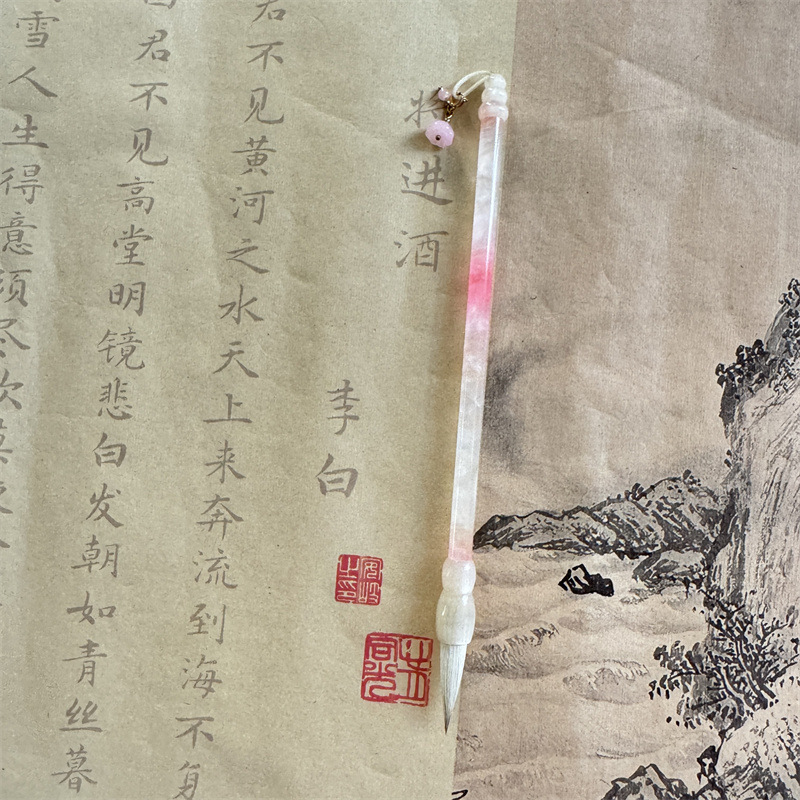 将进酒
李白
君不见黄河之水天上来奔流到海不复
君不见高堂明镜悲白发朝如青丝暮
雪人生得意须尽欢莫